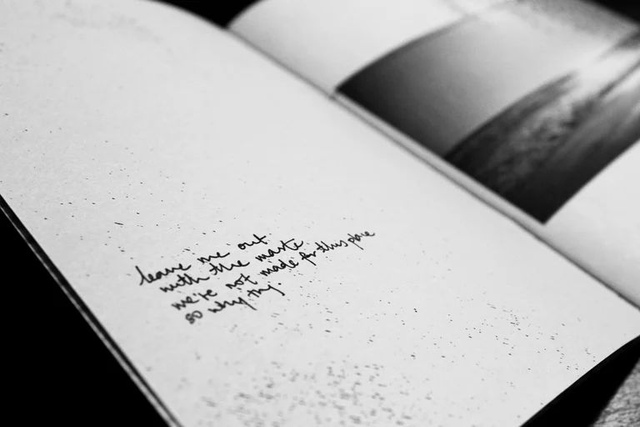 leave me out
with the waste
we're not made for this place
so why try